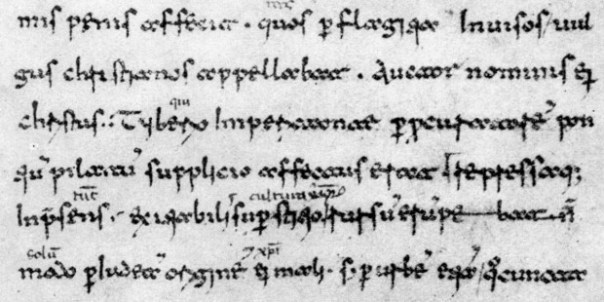 mis penis affecit . quos p flagitia Invisos vul
gus chrstianos appellabat . Auctor nominis ei
chrstus . Tiberio Imperitante p procuratorē pon
tiū pilatū supplicio affectus erat Repressaq;
Inpsens . exitiabilis supstitio rursū erūpebat n̄
modo p iudeā originē ei mali . s; p urbē etiā quo cuncta